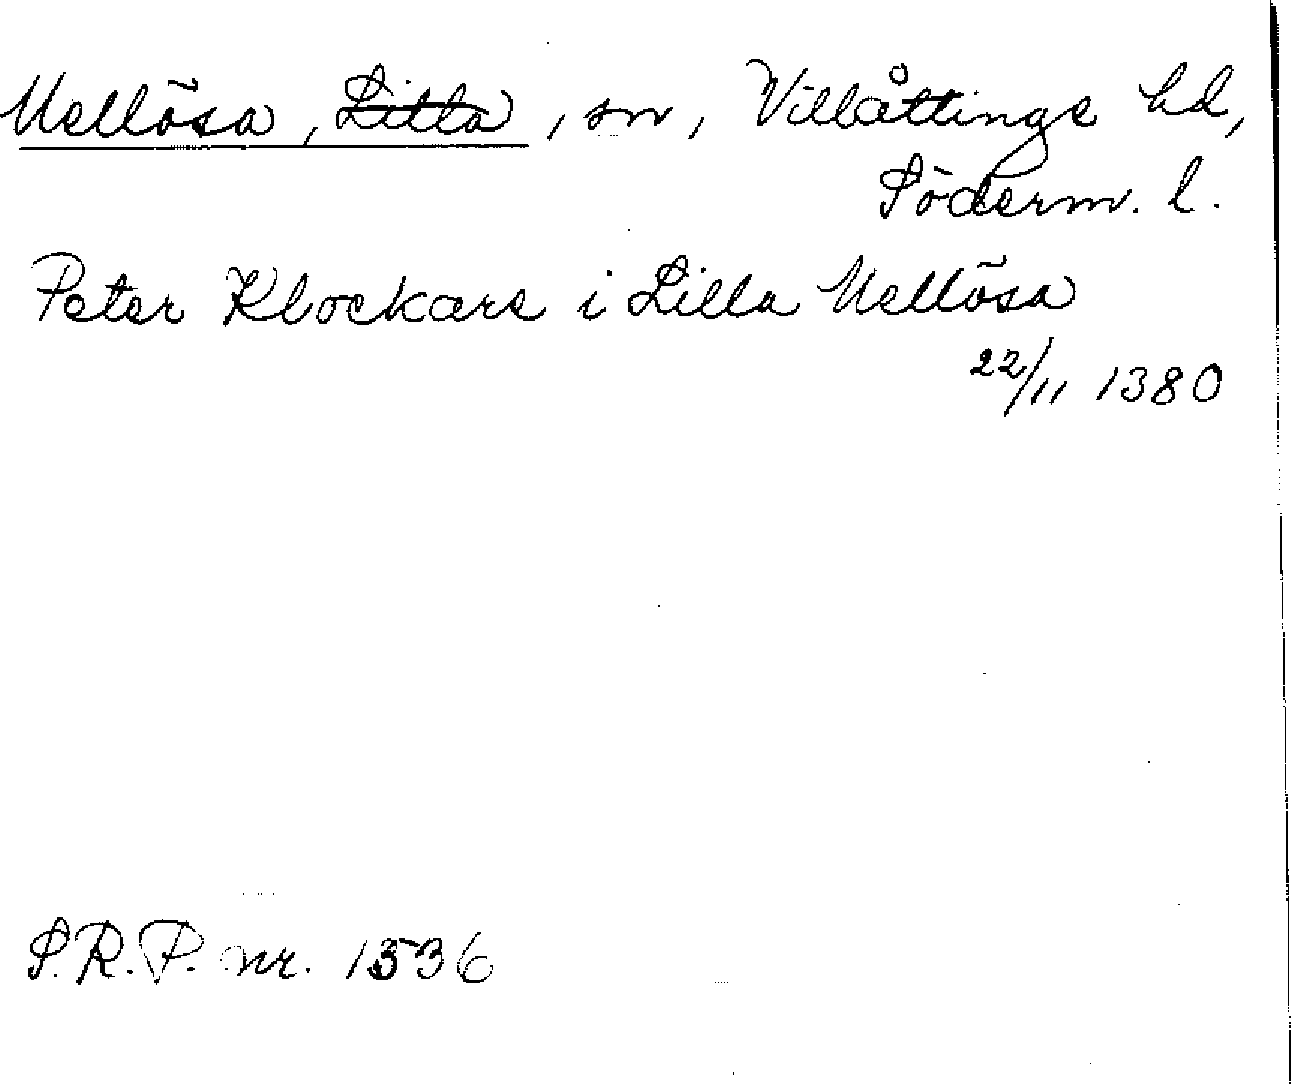 Mellösa, Lilla, sn, Villåttinge hd,
Söderm. l.
Peter Klockare i Lilla Mellösa
22/11 1380
S.R.P. nr. 1536